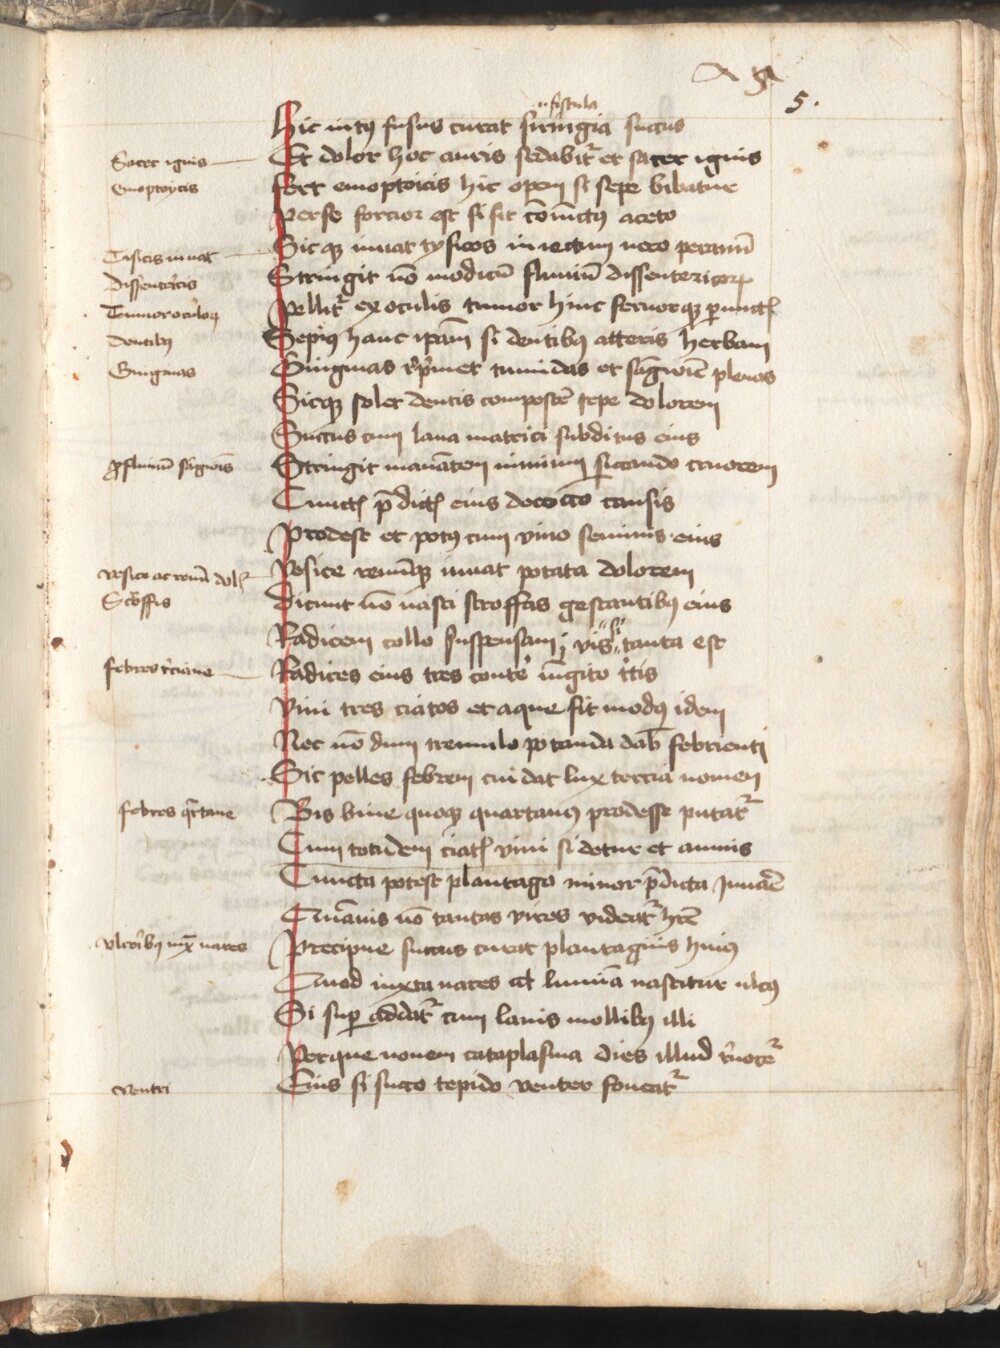 5.
fistula
Hic intus fusus curat siringia succus
Sacer ignis
Et dolor hoc auris sedabitr et sacer ignis
emoptoycis
fert emoptoicis hic opem si sepe bibatur
Perse forcior est si sit coniuctus aceto
Tisicis iuuat
Sicque iuuat tysicos iniectum uero per anum
Dissentericis
Stringit no modicu fluuiu dissentericorum
Tumor oculorum
Pellitr ex oculis tumor hinc feruorque
Dentibus
Sepius hanc ipam si dentibus atteris herbam
Gingiuas
Gingiuas rprimet tumidas et plenas
Sicque solet dentis compescere sepe dolorem
Succus cum lana matrici subditus eius
profluuiu sanguinis
Stringit manatem nimium siccando cruorem
Cunctis predictis eius decoctio causis
Prodest et potus cum vino seminis eius
vesice ac renum dolor
Vesice renumque iuuat potata dolorem
Scroffis
Dicunt no nasci scroffas gestantibus eius
Radicem collo suspensam vis tanta est
febres terciane
Radices eius tres iungito tritis
Vini tres ciatos et aque sit modus idem
Nec no dum tremulo potanda dab febrienti
Sic pelles febrem cui dat lux tercia nomen
febres qrtane
Bis bine quoque quartanis prodesse putatr
Cum totidem ciatis vini si detur et amnis
Cuncta potest plantago minor predicta Juuare
Quamuis no tantas vires videatr habere
vlceribus iuxta nares
Precipue succus curat plantaginis huius
Quod iuxta nares et lumina nascitur ulcus
Si super addatr cum lanis mollibus illi
Perque nouem cataplasma dies illud
ventri
Eius si succo tepido venter foueatr